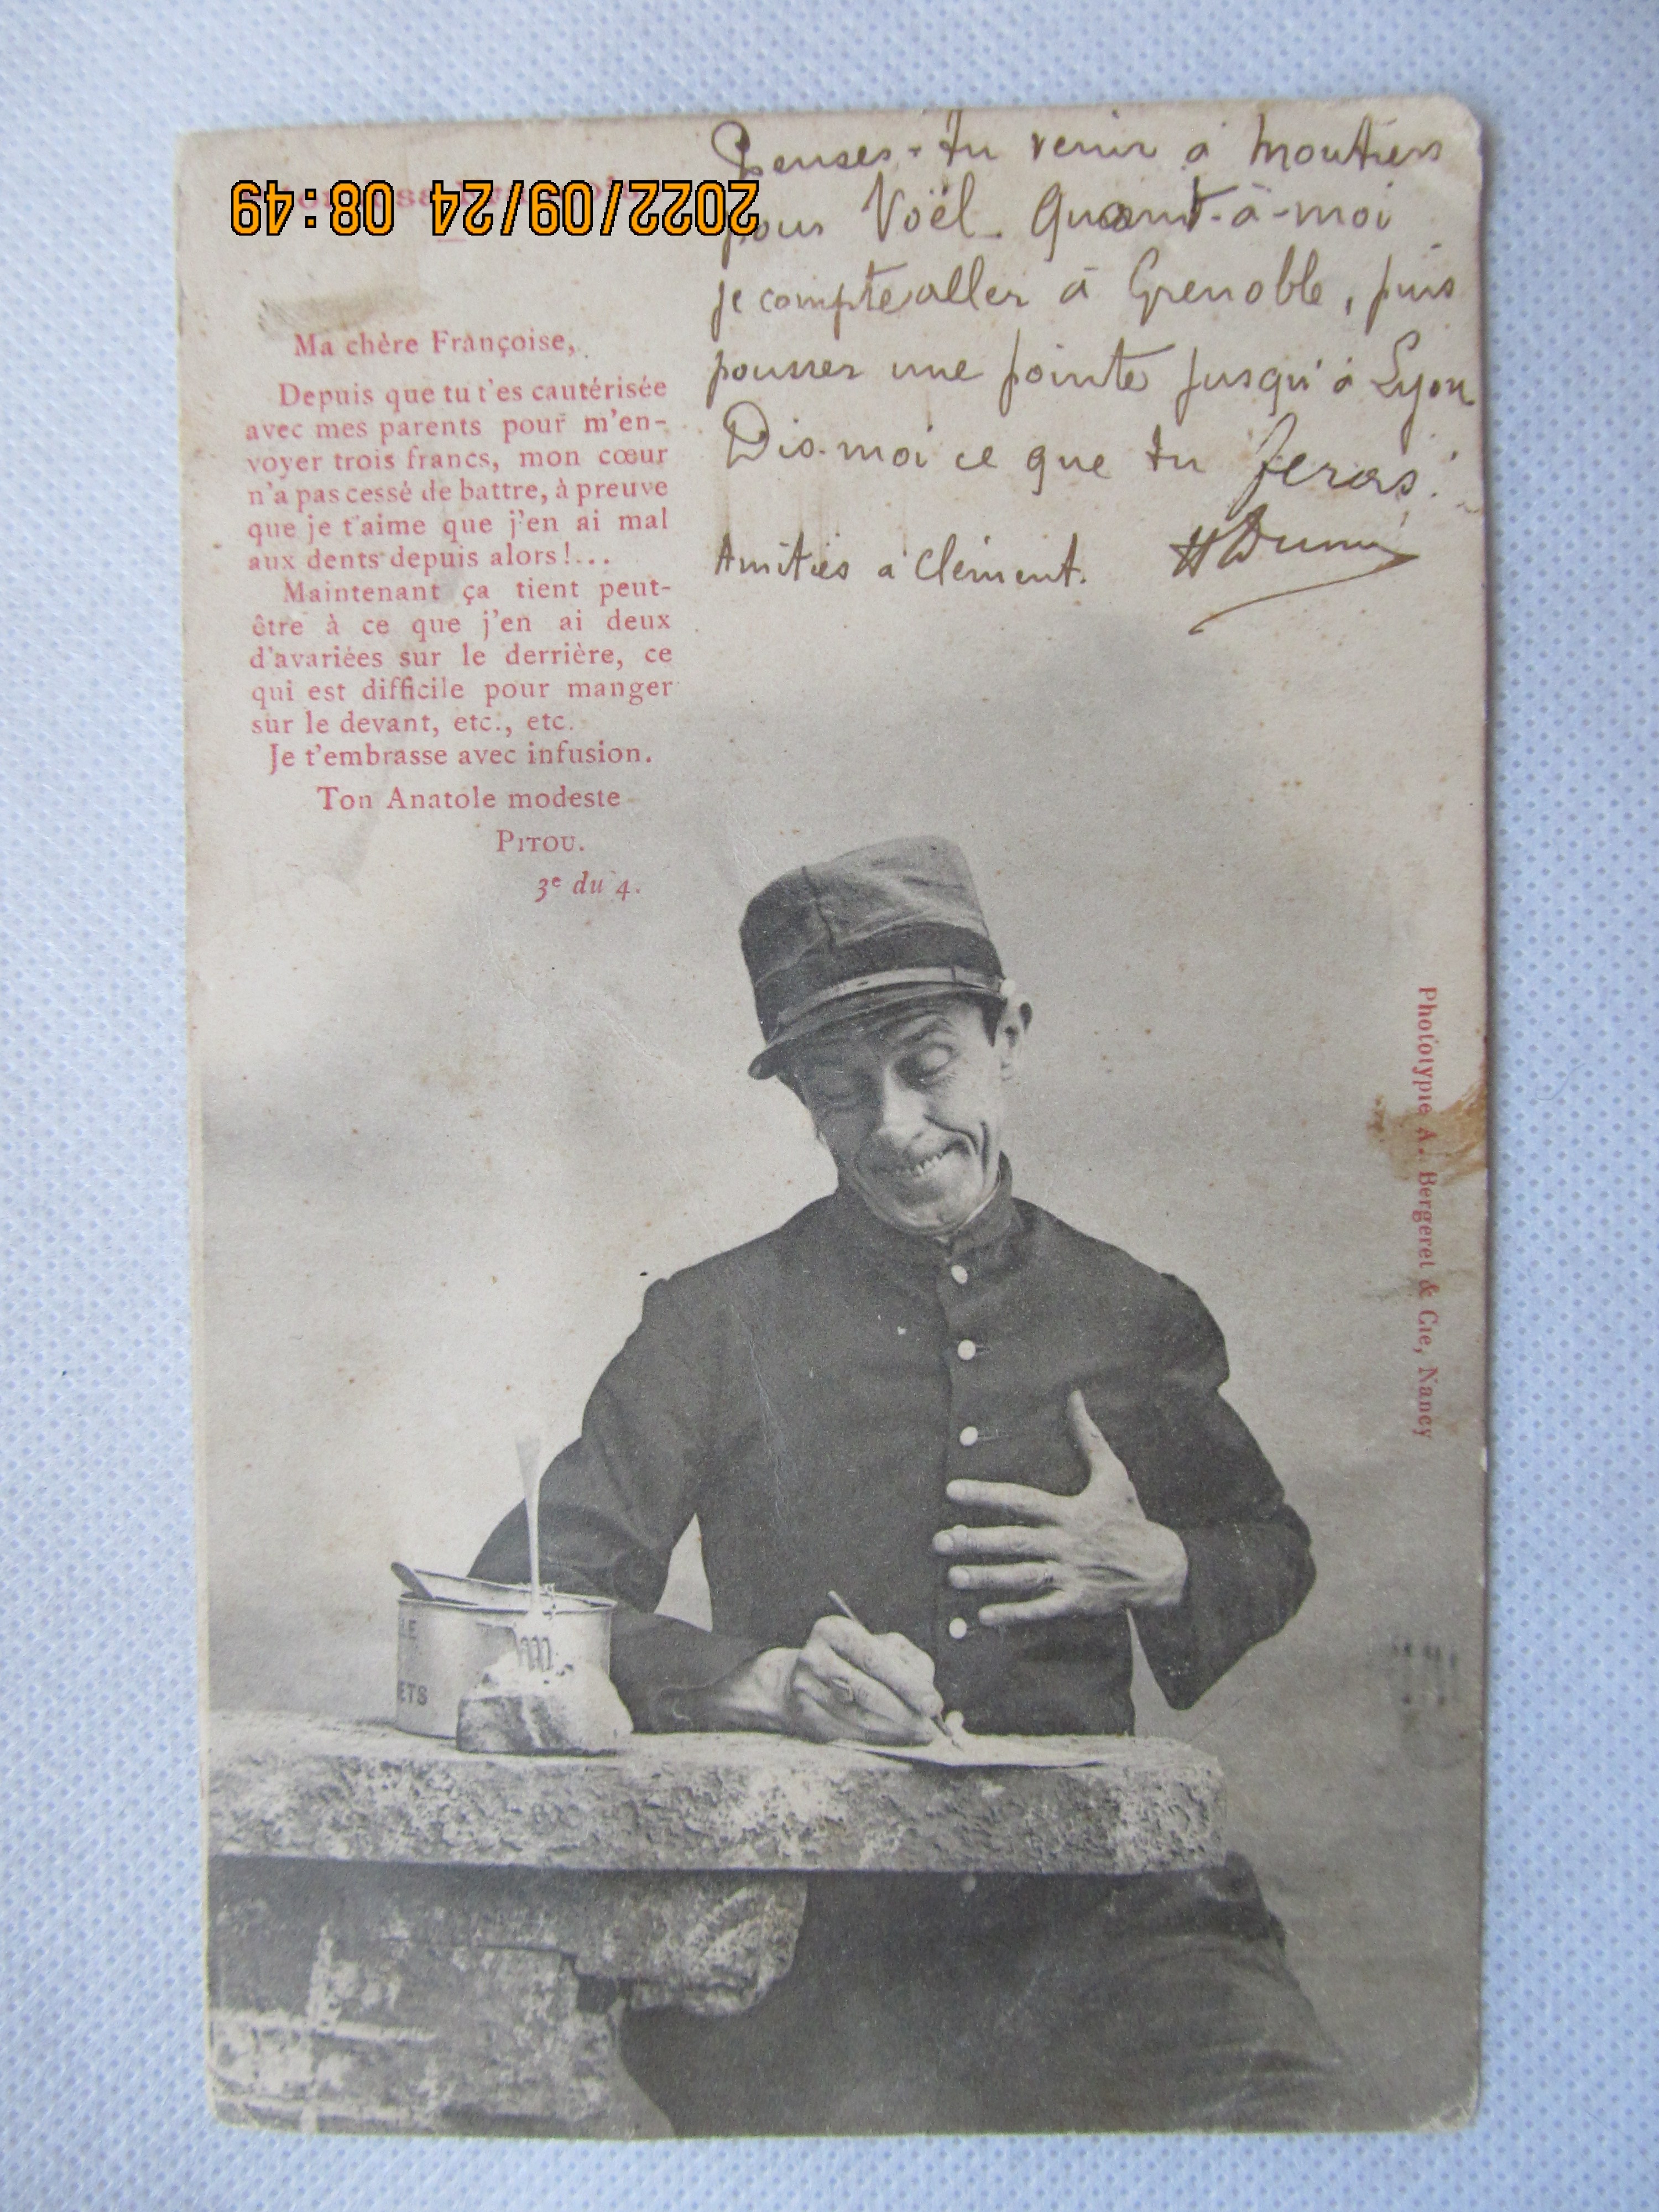 2022/09/24 08:49
Ma chère Françoise,
Depuis que tu t'es cautérisée
avec mes parents pour m'en-
voyer trois francs, mon cœur
n'a pas cessé de battre, à preuve
que je t'aime que j'en ai mal
aux dents depuis alors!...
Maintenant ça tient peut-
être à ce que j'en ai deux
d'avariées sur le derrière, ce
qui est difficile pour manger
sur le devant, etc., etc.
Je t'embrasse avec infusion.
Ton Anatole modeste
PITOU.
3e du 4.
Penses-tu venir à Moutiers
pour Noël. Quant-à-moi
je compte aller à Grenoble, puis
pousser une pointe jusqu'à Lyon
Dis-moi ce que tu feras!
Amitiés à Clément.
Phototypie A. Bergeret & Cie, Nancy
LE
ETS